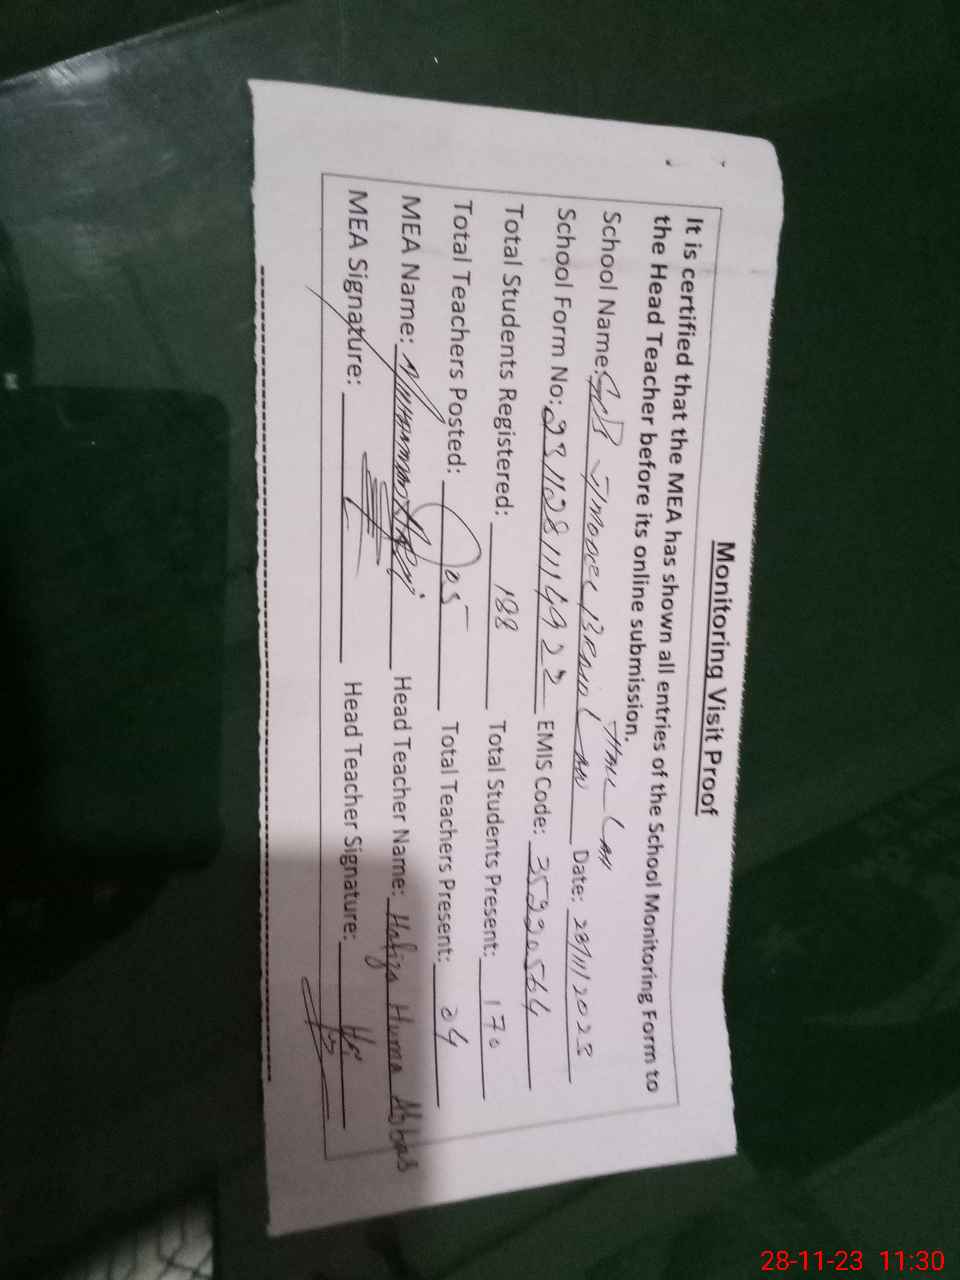 Monitoring Visit Proof
It is certified that the MEA has shown all entries of the School Monitoring Form to
the Head Teacher before its online submission.
School Name: Date: 28/11/2023
School Form No: 2311281114922 EMIS Code: 35220564
Total Students Registered: 188 Total Students Present: 170
Total Teachers Posted: 05 Total Teachers Present: 04
MEA Name: Head Teacher Name: Hafiza Huma Abbas
MEA Signature: Head Teacher Signature:
28-11-23 11:30